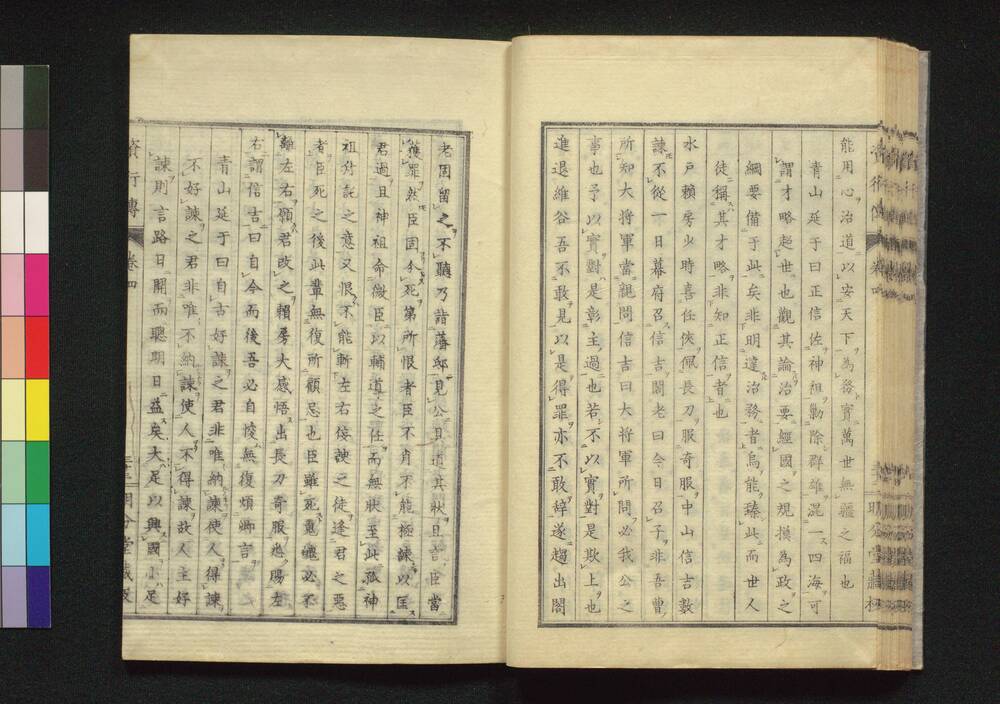 能用心治道以安天下為務寔萬世無疆之福也
青山延于曰正信佐神祖勦除群雄混一四海可
謂才略超世也觀其論治要經國之規模為政之
綱要備于此矣非明達治務者烏能臻此而世人
徒稱其才略非知正信者也
水戶賴房少時喜任俠佩長刀服奇服中山信吉數
諫不從一日幕府召信吉閣老曰今日召子非吾曹
所知大將軍當親問信吉曰大將軍所問必我公之
事也予以實對是彰主過也若不以實對是欺上也
進退維谷吾不敢見以是得罪亦不敢辭遂趨出閣
老固留之不聽乃詣藩邸見公具道其狀且言臣當
獲罪然臣固今死第所恨者臣不肖不能極諫以匡
君過且神祖命微臣以輔道之任而無狀至此孤神
祖付託之意又恨不能斬左右佞諛之徒逢君之惡
者臣死之後此輩無復所顧忌也臣雖死鬼魂必不
離左右願君改之賴房大感悟出長刀奇服悉賜左
右謂信吉曰自今而後吾必自悛無復煩卿言
青山延于曰自古好諫之君非唯納諫使人得諫
不好諫之君非唯不納諫使人不得諫故人主好
諫則言路日開而聰明日益矣大足以興國小足
資行傳 卷四